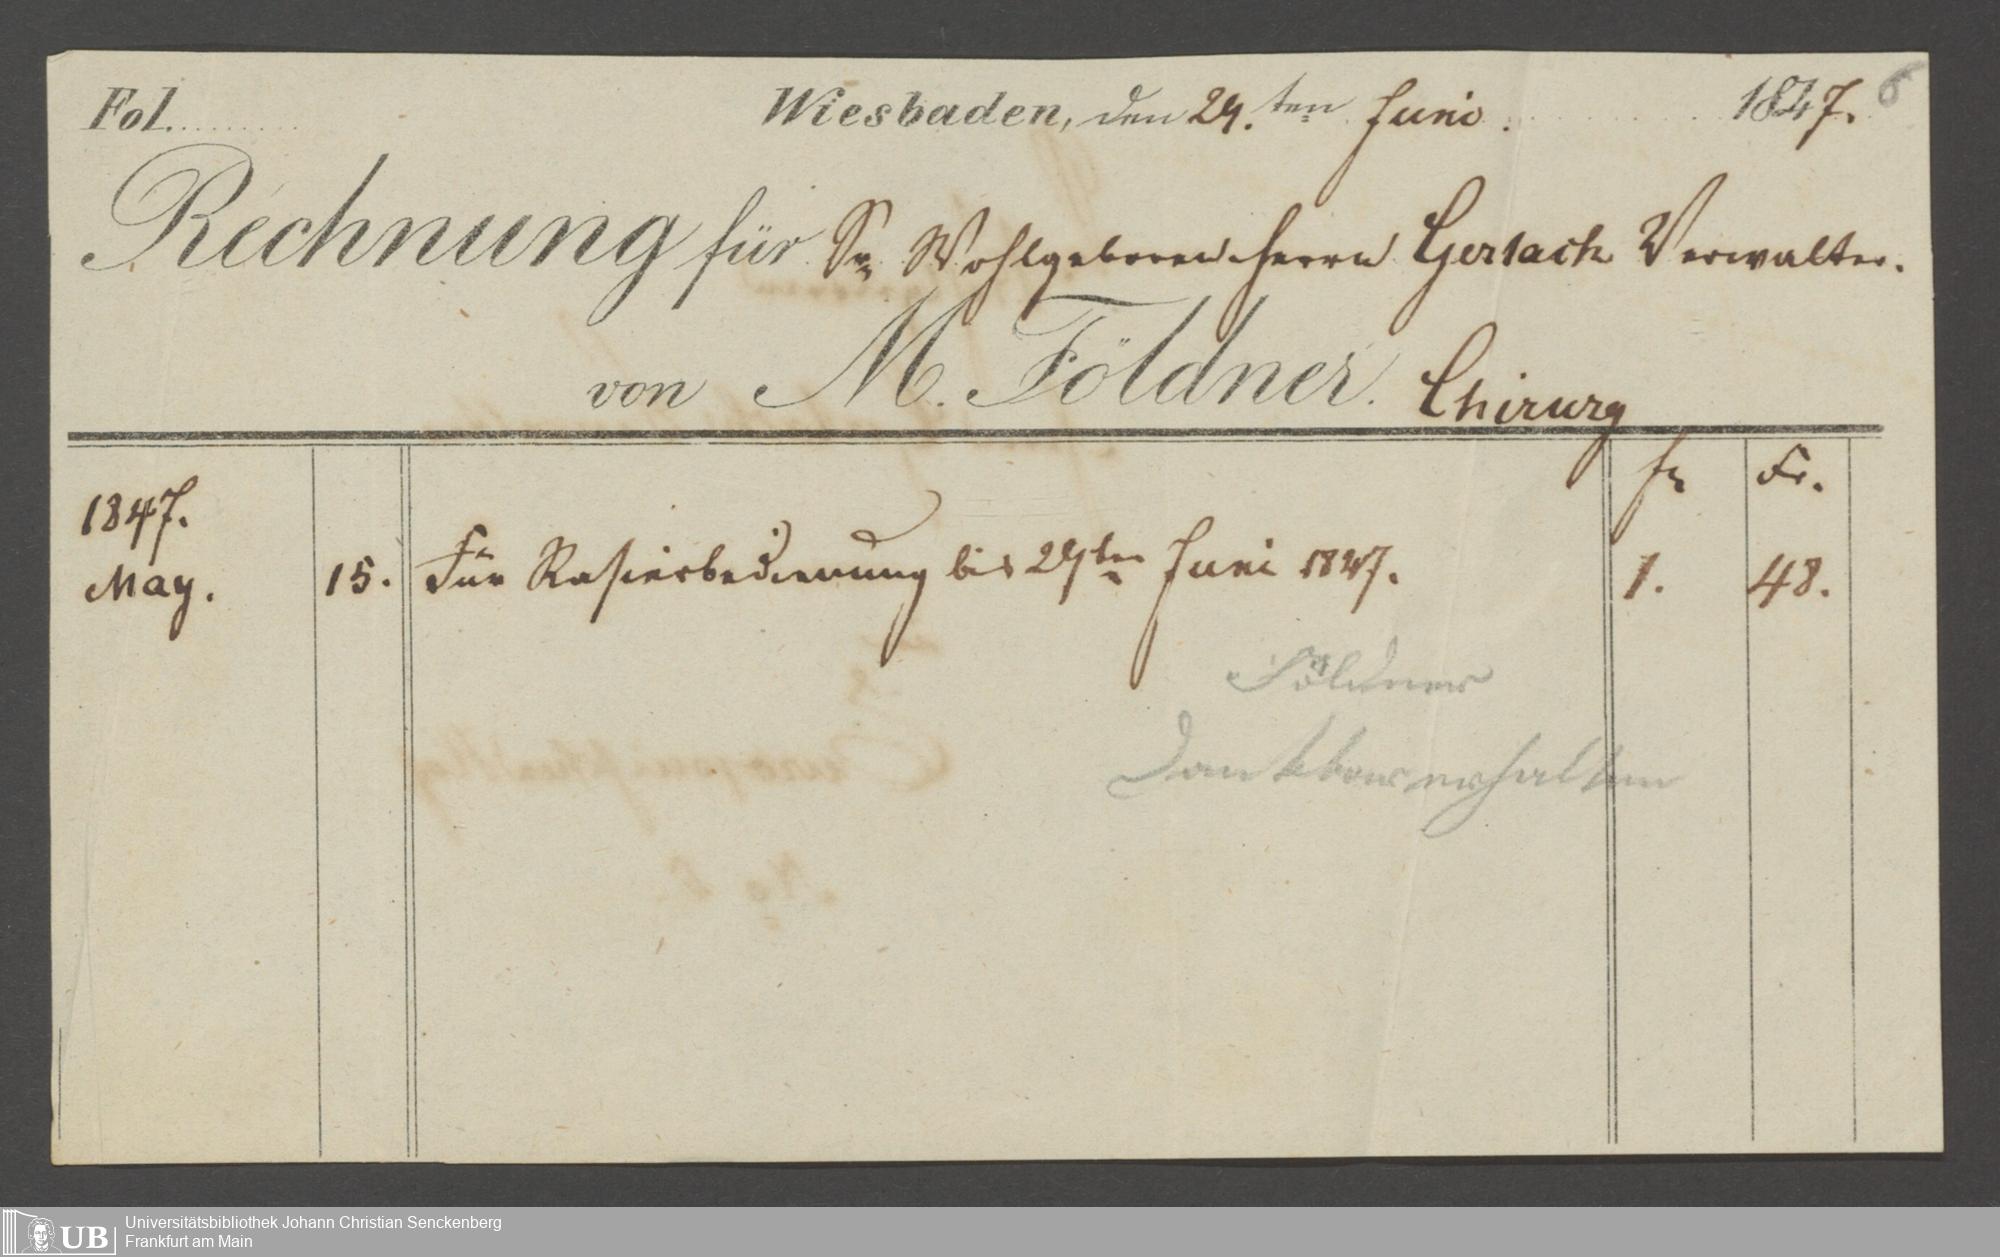 Fol. Wiesbaden, den 29.ten Juni. 1847. 6
Rechnung für Sr Wohlgeboren Herrn Gerlach Verwalter.
von M. Földner. Chirurg
fl Kr.
1847.
May. 15. Für Rasierbedienung bis 29ten Juni 1847. 1. 48.
Földner
Dankbar erhalten
UB Universitätsbibliothek Johann Christian Senckenberg
Frankfurt am Main